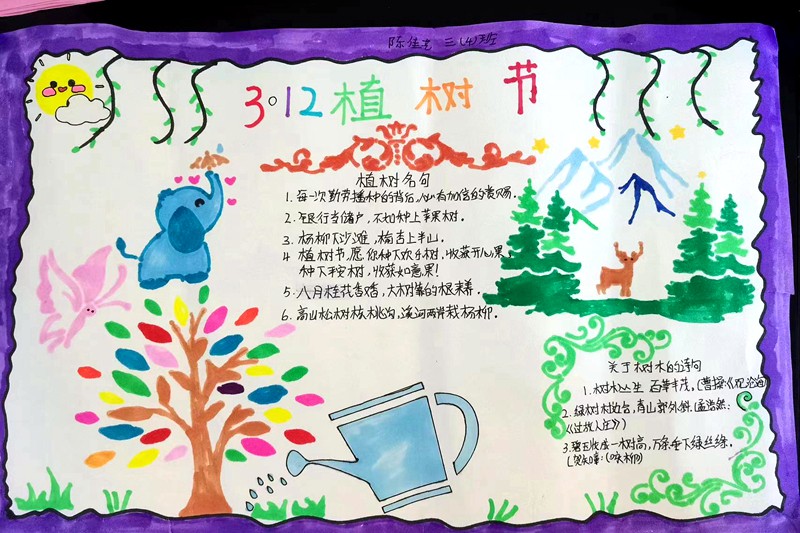 三(4)班
3.12植树节
植树名句
1. 每一次勤劳播种的背后,必有加倍的赏赐.
2. 在银行当储户,不如种上苹果树.
3. 杨柳下沙滩,梅杏上半山.
4 植树节,愿你种下欢乐树,收获开心果,
种下平安树,收获如意果!
5. 八月桂花香婚,大树靠的根来养.
6. 高山松树核桃沟,溪河两岸栽杨柳.
关于树木的诗句
1. 树木丛生 百草丰茂.(曹操《观沧海
2. 绿树村边合,青山郭外斜.(孟浩然:
《过故人庄》)
3. 碧玉妆成一树高,万条垂下绿丝绦.
(贺知章:(咏柳)